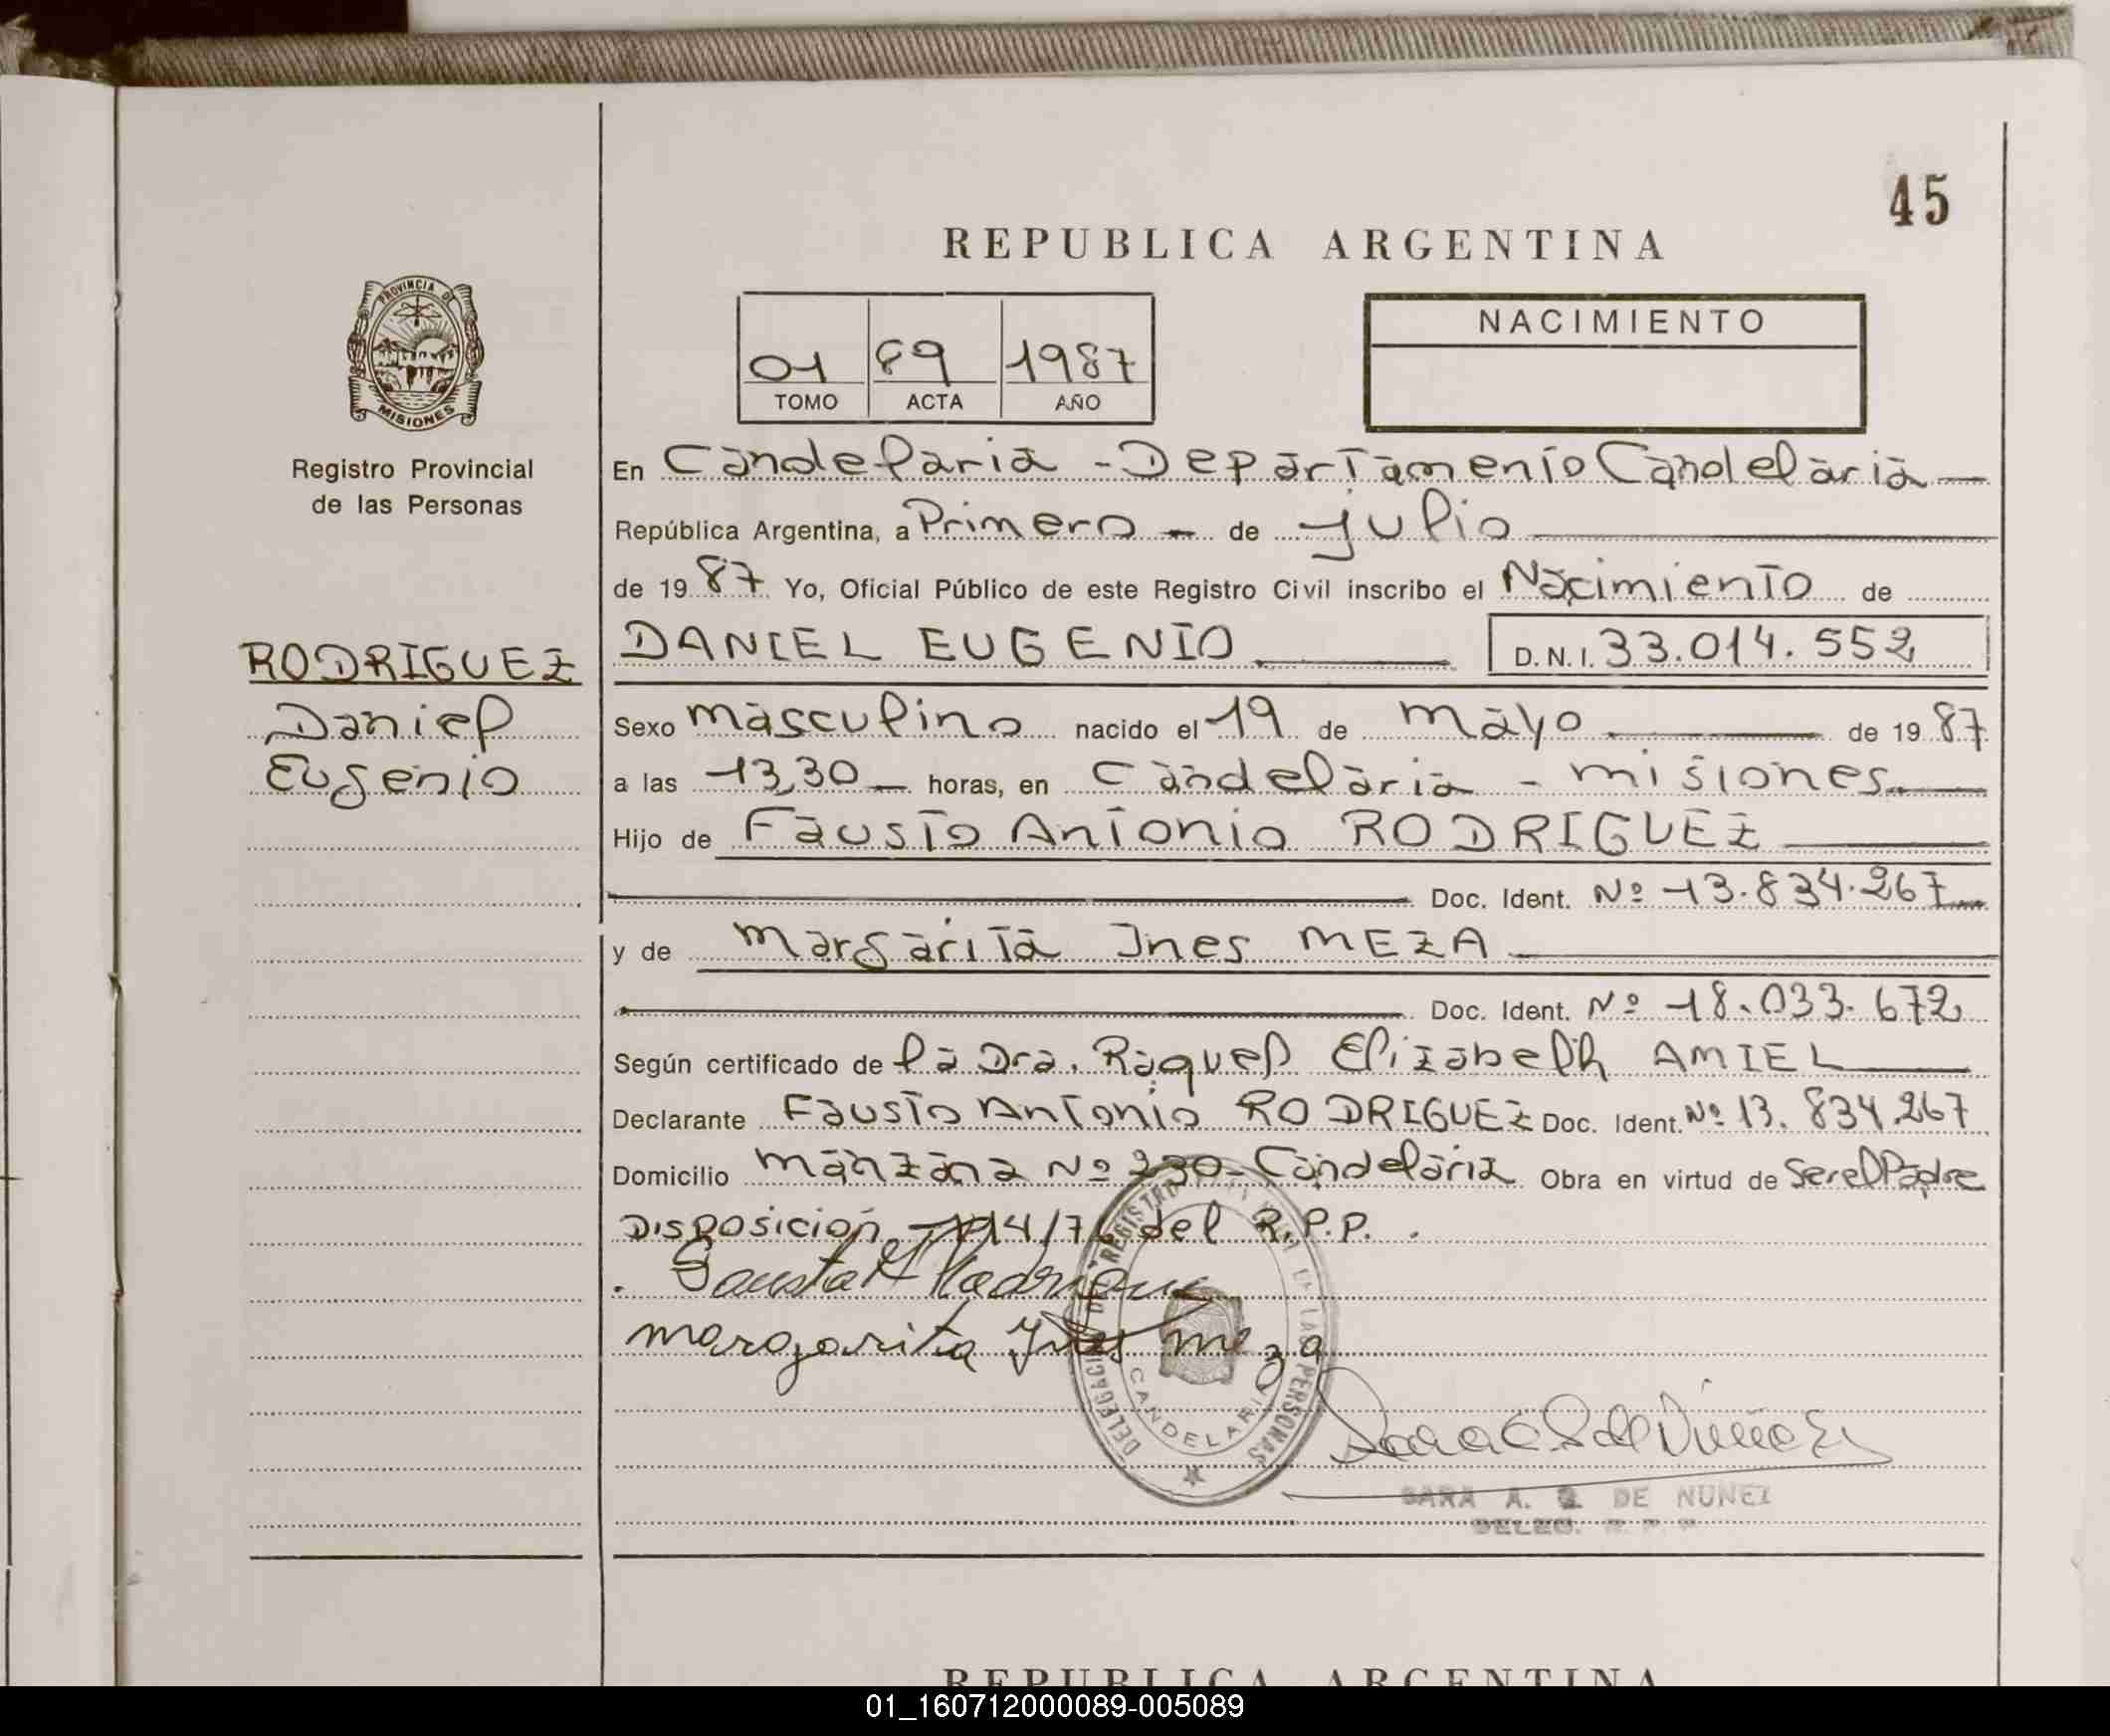 45
REPUBLICA ARGENTINA
PROVINCIA DE
MISIONES
Registro Provincial
de las Personas
01 89 1987
TOMO ACTA AÑO
NACIMIENTO
En Candelaria - Departamento Candelaria -
República Argentina, a Primero - de julio
de 19 87 Yo, Oficial Público de este Registro Civil inscribo el Nacimiento de
RODRIGUEZ
Daniel
Eugenio
DANIEL EUGENIO D.N.I. 33.014.552
Sexo masculino nacido el 19 de mayo de 19 87
a las 13,30 - horas, en Candelaria - misiones
Hijo de Fausto Antonio RODRIGUEZ
Doc. Ident. Nº 13.834.267
y de margarita Ines MEZA
Doc. Ident. Nº 18.033.672
Según certificado de la Dra. Raquel Elizabeth AMIEL
Declarante Fausto Antonio RODRIGUEZ Doc. Ident. Nº 13.834.267
Domicilio manzana Nº 230 - Candelaria Obra en virtud de Ser el Padre
Disposición del R.P.P.
margarita Ines meza
DELEGACION REGISTRO LAS PERSONAS
CANDELARIA
SARA A. DE NUÑEZ
DELEG.
REPUBLICA ARGENTINA
01_160712000089-005089